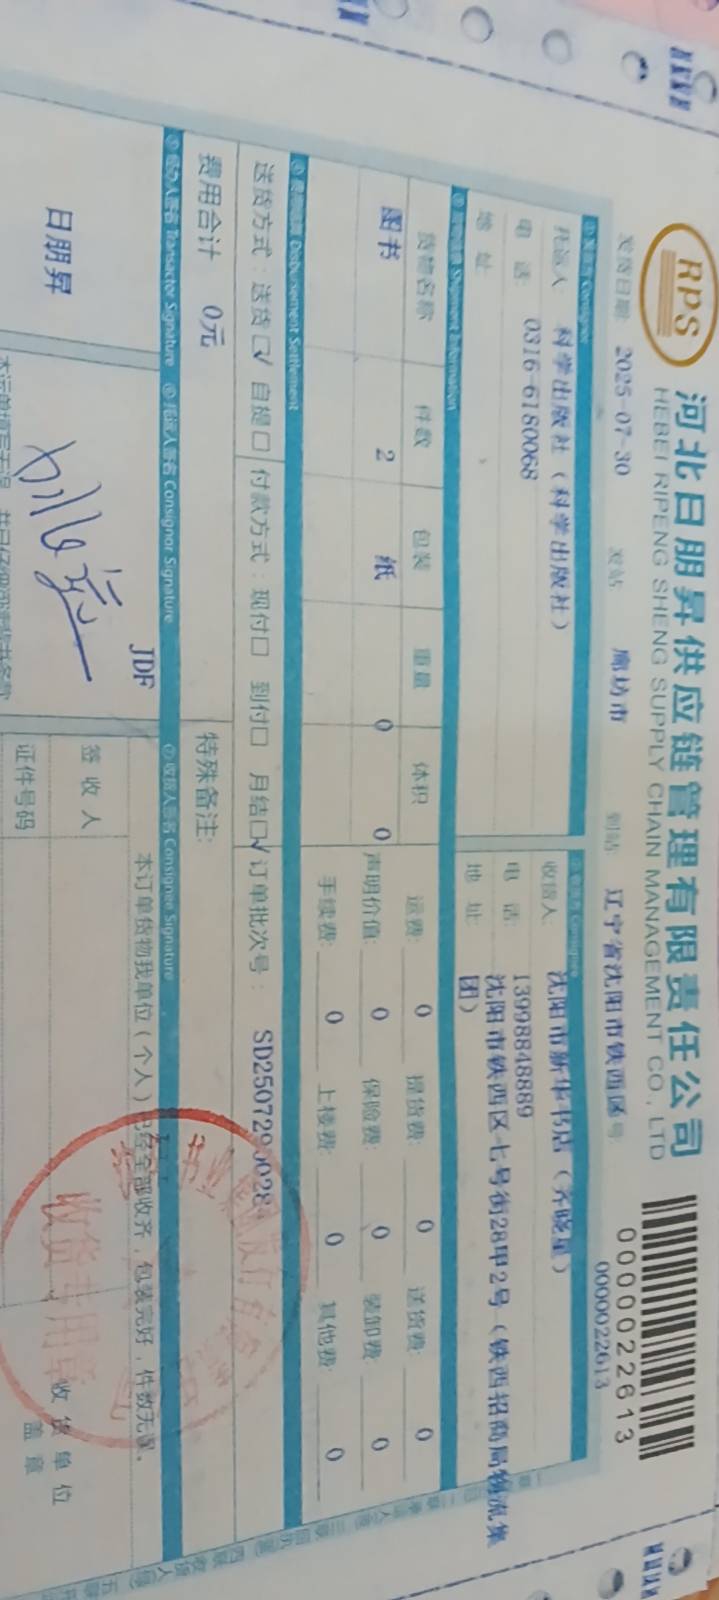 RPS
河北日朋昇供应链管理有限责任公司
HEBEI RIPENG SHENG SUPPLY CHAIN MANAGEMENT CO., LTD
0000022613
0000022613
发货日期: 2025-07-30 发站: 廊坊市 到站: 辽宁省沈阳市铁西区
托运人: 科学出版社（科学出版社）
电 话: 0316-6180068
地 址:
收货人: 沈阳市新华书店（齐晓星）
电 话: 13998848889
地 址: 沈阳市铁西区七号街28甲2号（铁西招商局物流集
团）
Shipment Information
货物名称 件数 包装 重量 体积
图书 2 纸 0 0
运费: 0 提货费: 0 送货费: 0
声明价值: 0 保险费: 0 装卸费: 0
手续费: 0 上楼费: 0 其他费: 0
Disbursement Settlement
送货方式：送货☑ 自提□ 付款方式：现付□ 到付□ 月结☑ 订单批次号：
费用合计 0元
特殊备注:
⑤ 经办人签名 Transactor Signature
⑥ 托运人签名 Consignor Signature
⑦ 收货人签名 Consignee Signature
日朋昇
JDF
本订单货物我单位（个人）已经全部收齐，包装完好，件数无误。
签 收 人
证件号码
收 货 单 位
盖 章
收货专用章